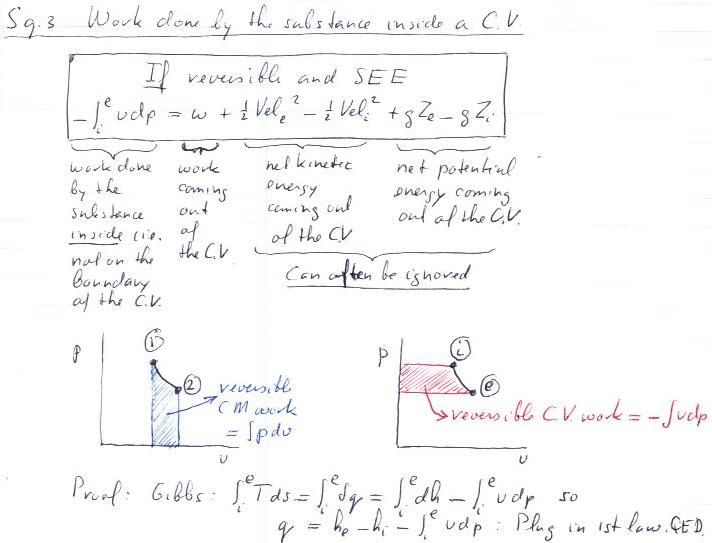 S9.3 Work done by the substance inside a C.V.
If reversible and SEE
-∫ᵢᵉ vdp = w + ½ Velₑ² - ½ Velᵢ² + gZₑ - gZᵢ
work done by the substance inside (i.e. not on the Boundary of the C.V.
work coming out of the C.V.
net kinetic energy coming out of the CV
net potential energy coming out of the C.V.
Can often be ignored
P
①
②
reversible CM work = ∫pdv
v
P
ⓘ
ⓔ
reversible C.V. work = -∫vdp
v
Proof: Gibbs: ∫ᵢᵉ Tds = ∫ᵢᵉ δq = ∫ᵢᵉ dh - ∫ᵢᵉ vdp so
q = hₑ - hᵢ - ∫ᵢᵉ vdp : Plug in 1st law. QED.